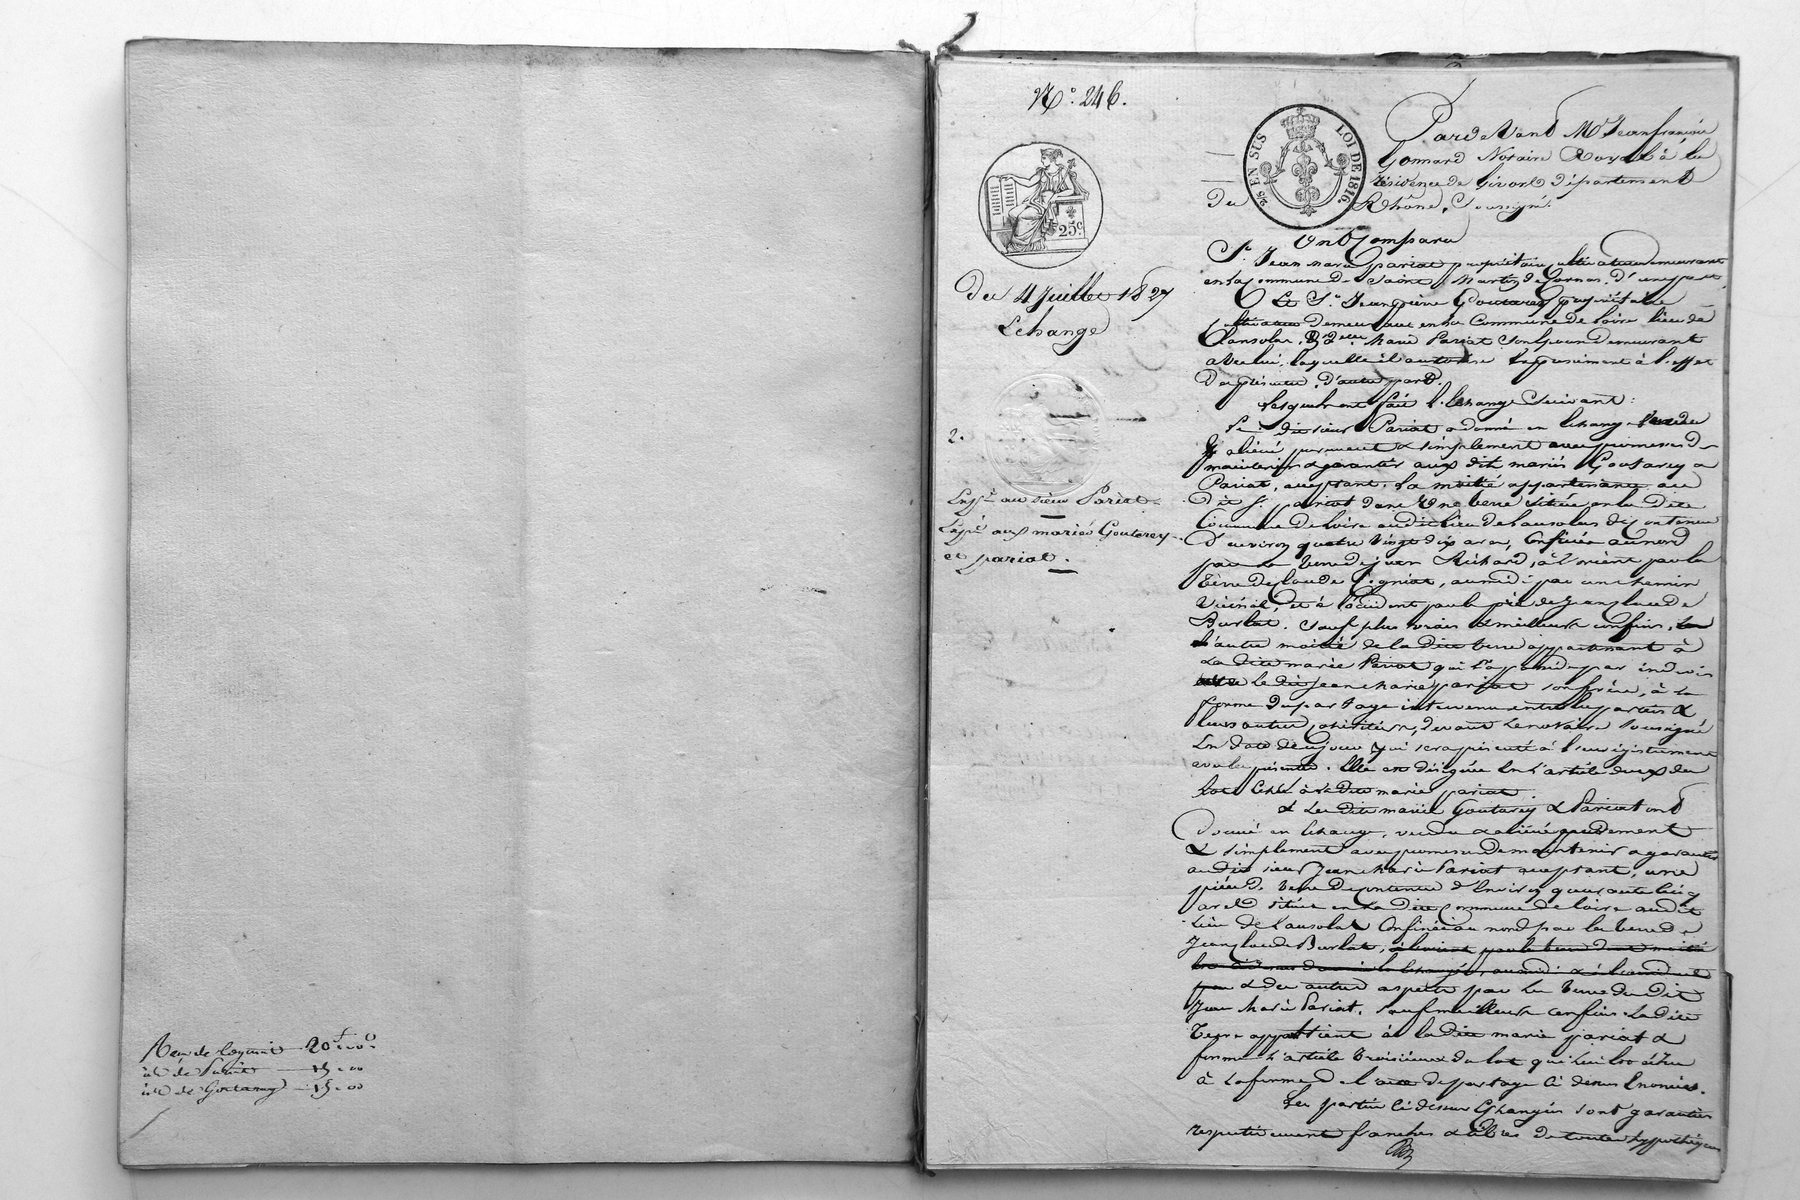 Reçu de Cognat 20f.00c
id de Pariat 15.00
id de Goutarey 15.00
N° 246.
25c
Du 4 Juillet 1827
Echange
2.
Expé au sieur Pariat.
Expé aux mariés Goutarey
et pariat.
EN SUS LOI DE 1816.
Pardevant Me Jean françois
Gonnard Notaire Royal à la
résidence de Givors département
du Rhône, Soussigné.
Ont Comparu
Sr Jean marie pariat propriétaire cultivateur demeurant
en la commune de Saint Martin de Cornas, d'une part
Et le Sr Jean pierre Goutarey propriétaire
cultivateur demeurant en la Commune de loire lieu de
Lansolas, & dme Marie Pariat son épouse demeurant
avec lui, laquelle il autorise expressément à l'effet
des présentes, d'autre part.
Lesquels ont fait l'échange Suivant:
Le dit sieur Pariat a donné en échange
& aliéné purement & simplement avec promesse de
maintenir & garantir aux dits mariés Goutarey &
Pariat, acceptant, la moitié appartenant au
dit Sr pariat dans Une terre située en la dite
Commune de loire audit lieu de Lansolas de contenue
d'environ quatre vingt dix ares, Confinée au nord
par la terre de jean Richard, à l'orient par la
terre de Claude Cogniat, au midi par un chemin
Vicinal, et à l'occident par le pré de Jean Claude
Burlat. Sauf plus vrais & meilleurs confins,
L'autre moitié de la dite terre appartenant à
La dite marie Pariat qui la par indivis
le dit Jean Marie pariat son frère, à la
forme du partage intervenu entre les parties &
leurs autres cohéritiers, devant le notaire Soussigné
En date de ce jour qui sera présenté à l'enregistrement
avec les présentes. Elle est désignée En l'article deux du
lot échu à la dite marie pariat.
& Les dits mariés Goutarey & Pariat ont
donné en échange, vendu & aliéné purement
& simplement avec promesse de maintenir & garantir
au dit sieur Jean Marie Pariat acceptant, une
pièce de terre de contenue d'Environ quarante cinq
ares située en La dite Commune de loire audit
lieu de Lansolas Confinée au nord par la terre de
Jean Claude Burlat,
& des autres aspects par la terre du dit
Jean Marie Pariat, Sauf meilleurs confins La dite
Terre appartient à la dite marie pariat &
forme L'article troisième du lot qui lui est échu
à la forme de l'acte de partage Ci dessus énoncé.
Les parties Ci dessus Echangées sont garanties
respectivement franches & libres de toutes hypothèques